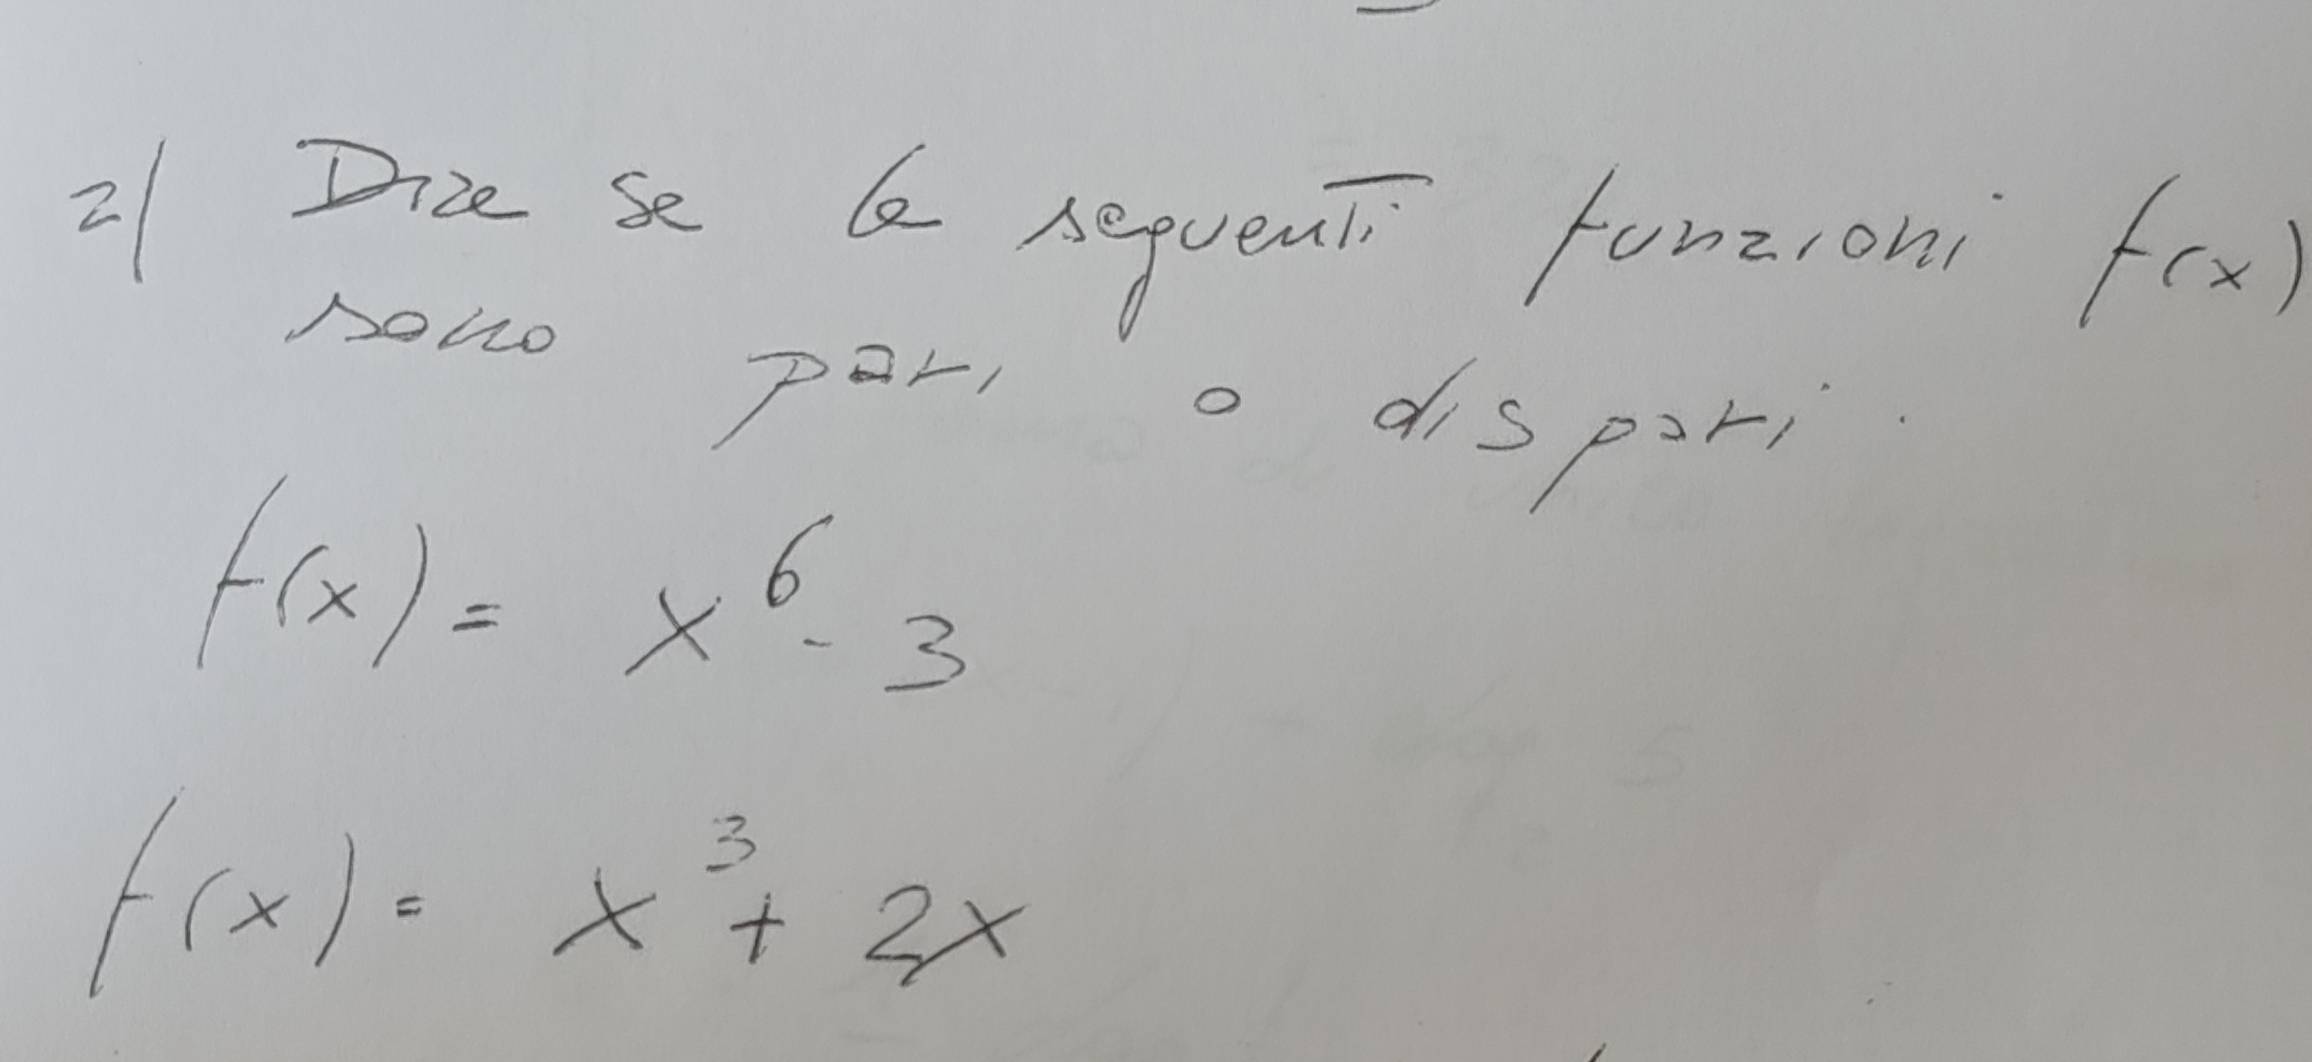 2) Dire se le seguenti funzioni f(x)
sono pari o dispari.
f(x) = x⁶ - 3
f(x) = x³ + 2x